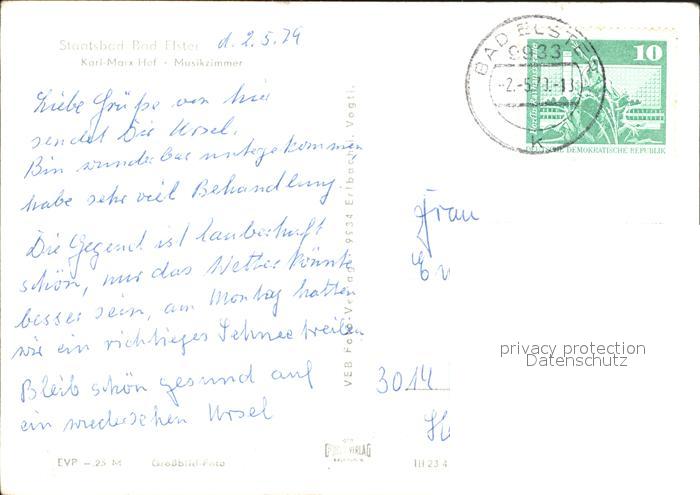 Staatsbad Bad Elster d. 2.5.79
Karl-Marx Hof - Musikzimmer
Liebe Grüße von hier
sendet Die Ursel.
Bin wunderbar untergekommen
habe sehr viel Behandlung
Die Gegend ist zauberhaft
schön, nur das Wetter könnte
besser sein, am Montag hatten
wir ein richtiges Schneetreiben
Bleib schön gesund auf
ein wiedersehen Ursel
EVP -.25 M Großbild-Foto
VEB Foto-Verlag 9934 Erlbach i. Vogtl.
VERLAG
III 23 4
BAD ELSTER
9933
-2.-5.79.-18
k
10
DEMOKRATISCHE REPUBLIK
Frau
3014
privacy protection
Datenschutz